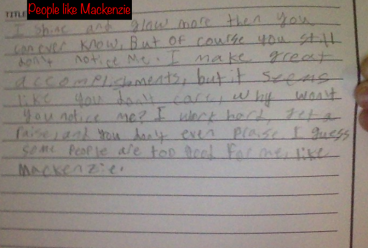 People like Mackenzie
TITLE
I shine and glow more then you
can ever know. But of course you still
don't notice me. I make great
accomplishments, but it seems
like you don't care, why won't
you notice me? I work hard, get a
raise, and you don't even praise. I guess
some people are too good for me, like
Mackenzie.